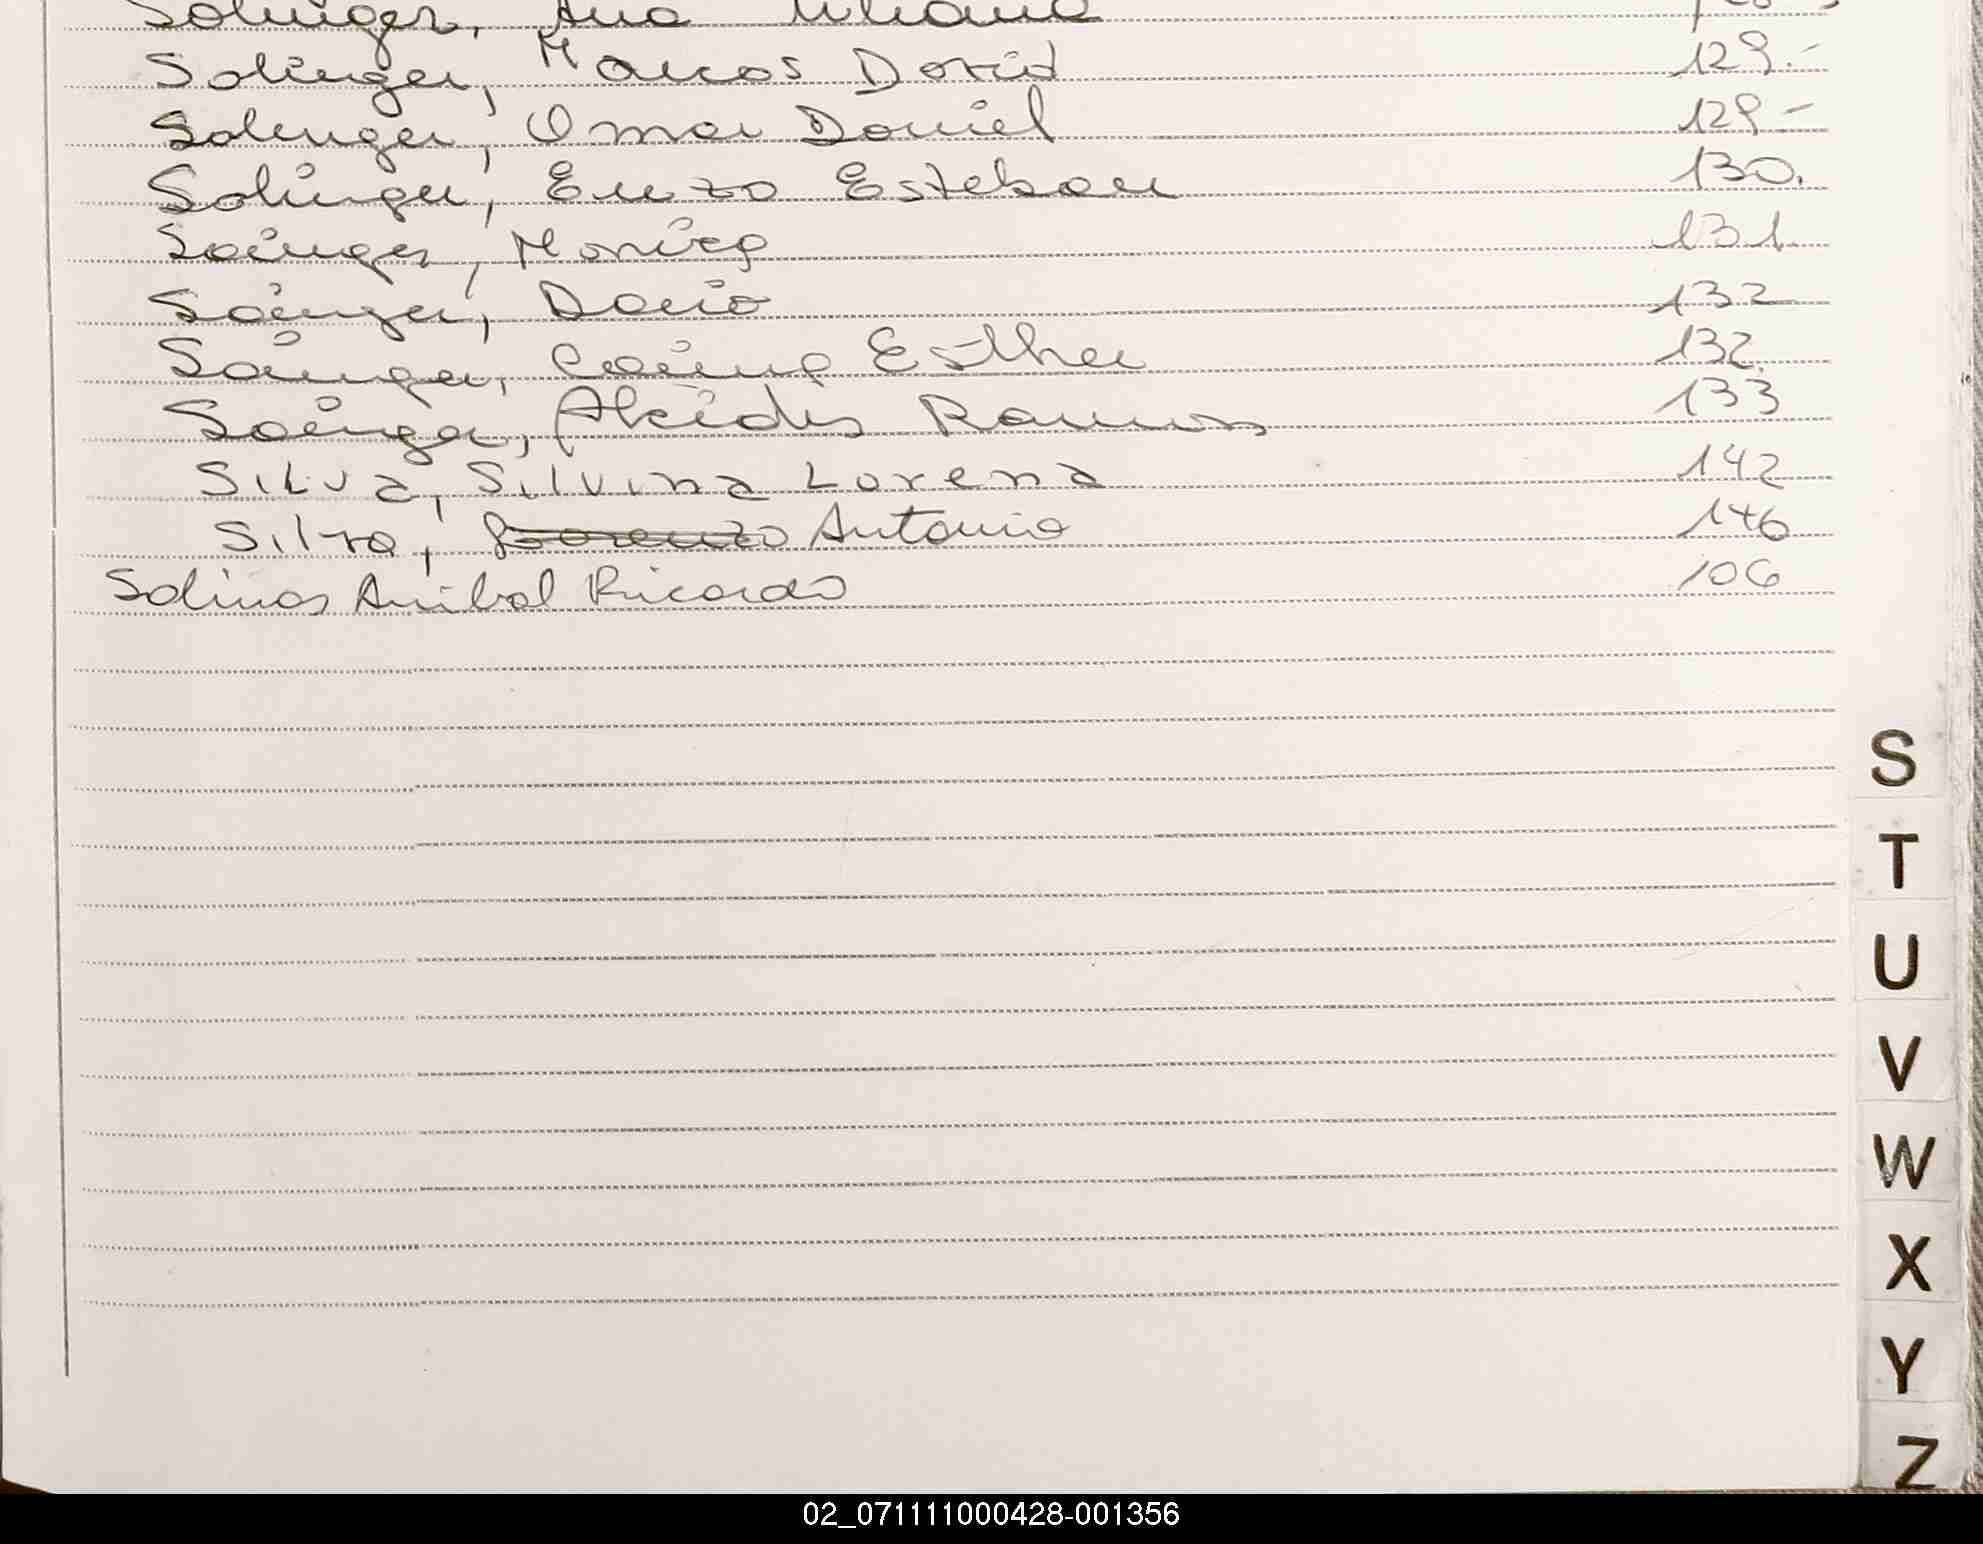 Solinger, Ana Liliana
Solinger, Marcos David 129.-
Solinger, Omar Daniel 129-
Solinger, Enzo Esteban 130.
Sainger, Monica 131.
Sainger, Dario 132
Sainger, Carina Esther 132.
Sainger, Alcides Ramon 133
SiLva, Silvina Lorena 142
Silva, Lorenzo Antonio 146
Salinas Anibal Ricardo 106
S
T
U
V
W
X
Y
Z
02_071111000428-001356